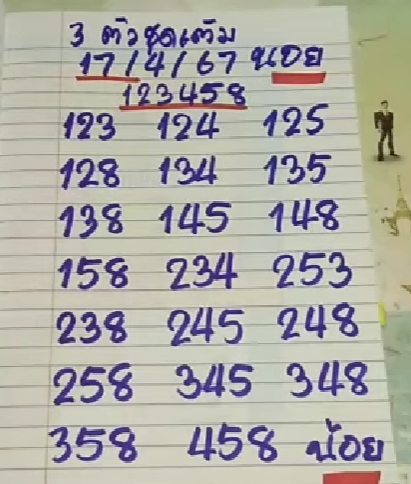 3 ตัวชุดเต็ม
17/4/67 นอย
123458
123 124 125
128 134 135
138 145 148
158 234 253
238 245 248
258 345 348
358 458 น้อย